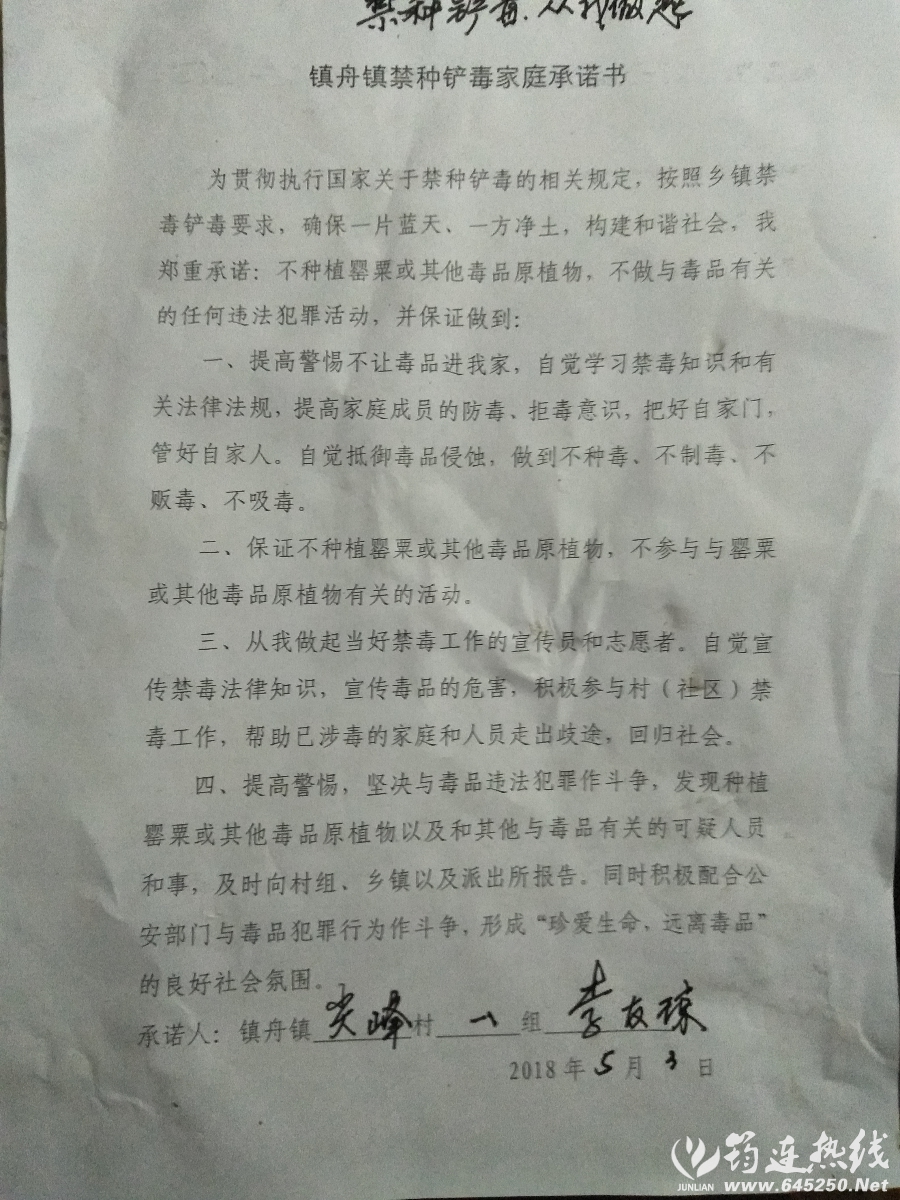 禁种铲毒.从我做起
镇舟镇禁种铲毒家庭承诺书
为贯彻执行国家关于禁种铲毒的相关规定，按照乡镇禁
毒铲毒要求，确保一片蓝天、一方净土，构建和谐社会，我
郑重承诺：不种植罂粟或其他毒品原植物，不做与毒品有关
的任何违法犯罪活动，并保证做到：
一、提高警惕不让毒品进我家，自觉学习禁毒知识和有
关法律法规，提高家庭成员的防毒、拒毒意识，把好自家门，
管好自家人。自觉抵御毒品侵蚀，做到不种毒、不制毒、不
贩毒、不吸毒。
二、保证不种植罂粟或其他毒品原植物，不参与与罂粟
或其他毒品原植物有关的活动。
三、从我做起当好禁毒工作的宣传员和志愿者。自觉宣
传禁毒法律知识，宣传毒品的危害，积极参与村（社区）禁
毒工作，帮助已涉毒的家庭和人员走出歧途，回归社会。
四、提高警惕，坚决与毒品违法犯罪作斗争，发现种植
罂粟或其他毒品原植物以及和其他与毒品有关的可疑人员
和事，及时向村组、乡镇以及派出所报告。同时积极配合公
安部门与毒品犯罪行为作斗争，形成“珍爱生命，远离毒品”
的良好社会氛围。
承诺人：镇舟镇尖峰村一组李友琼
2018年5月3日
筠连热线
JUNLIAN www.645250.Net